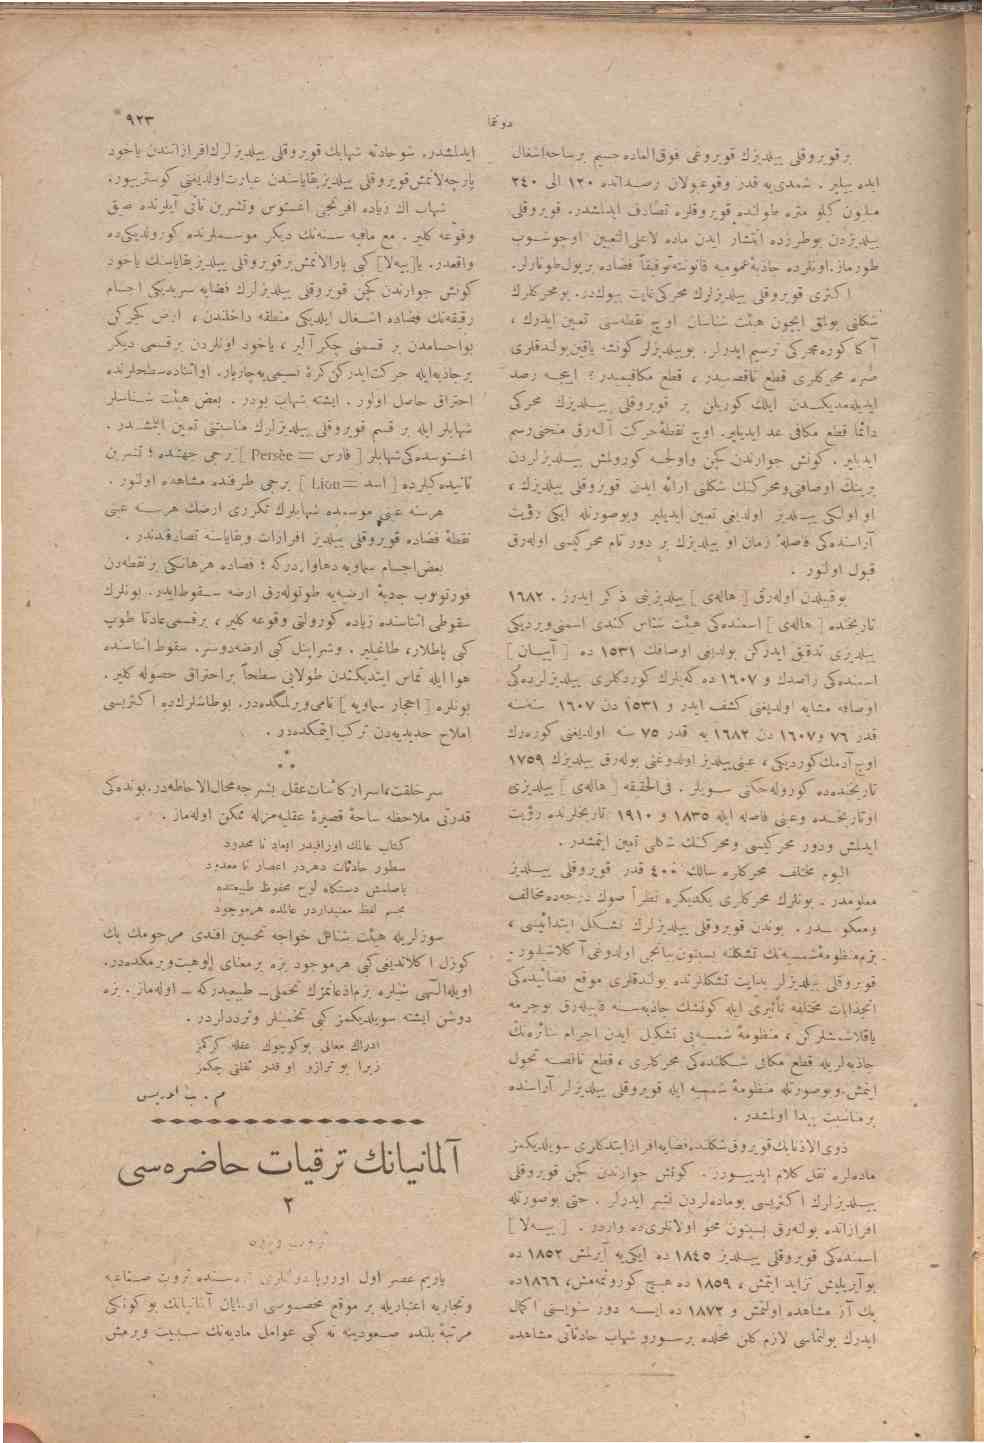 دوننما
٩٢٣
بر قويروقلى ييلديزك قويروغى فوق العاده جسيم بر ساحه اشغال
ايده بيلير . شمدى‌يه قدر وقوعبولان رصدانده ١٢٠ الى ٢٤٠
مليون كيلو متره طولنده قويروقلره تصادف ايدلمشدر. قويروقلى
ييلديزدن بوطرزده انتشار ايدن ماده لاعلى التعيين اوچوشوب
طورماز. اونلرده جاذبۀ عموميه قانوننه توفيقاً فضاده بر يول طوتارلر.
اكثرى قويروقلى ييلديزلرك محركى غايت بيوكدر. بومحركلرك
شكلنى بولمق ايچون هيئت شناسان اوچ نقطه‌سى تعيين ايدرك ،
آ كا كوره محركى ترسيم ايدرلر. بوييلديزلر كونشه ياقين بولندقلرى
صره محركلرى قطع ناقصميدر ، قطع مكافيميدر ؟ ايجه رصد
ايديله‌مديكندن ايلك كوريلن بر قويروقلى ييلديزك محركى
دائما قطع مكافى عد ايديلير. اوچ نقطۀ حركت آله‌رق منحنى رسم
ايديلير . كونش جوارندن كچن واولجه كورولمش ييلديزلردن
برينك اوصافنى ومحركنك شكلنى ارائه ايدن قويروقلى ييلديزك ،
او اولكى ييلديز اولديغى تعيين ايديلير وبوصورتله ايكى رؤيت
آراسنده‌كى فاصلۀ زمان او ييلديزك بر دور تام محركيسى اوله‌رق
قبول اولنور .
بوقبيلدن اوله‌رق [ هاله‌ى ] ييلديزينى ذكر ايدرز . ١٦٨٢
تاريخنده [ هاله‌ى ] اسمنده‌كى هيئت شناس كندى اسمنى ويرديكى
ييلديزى تدقيق ايدركن بولديغى اوصافك ١٥٣١ ده [ آپيان ]
اسمنده‌كى راصدك و ١٦٠٧ ده كپلرك كوردكلرى ييلديزلرده‌كى
اوصافه مشابه اولديغنى كشف ايدر و ١٥٣١ دن ١٦٠٧ سنه‌سنه
قدر ٧٦ و ١٦٠٧ دن ١٦٨٢ يه قدر ٧٥ سنه اولديغنى كوره‌رك
اوچ آدمك كورديكى ، عينى ييلديز اولدوغنى بوله‌رق ييلديزك ١٧٥٩
تاريخنده‌ده كوروله‌جكنى سويلر . فى الحقيقه [ هاله‌ى ] ييلديزى
اوتاريخده وعينى فاصله ايله ١٨٣٥ و ١٩١٠ تاريخلرنده رؤيت
ايدلمش ودور محركيسى ومحركنك شكلى تعين ايتمشدر .
اليوم مختلف محركلره سالك ٤٠٠ قدر قويروقلى ييلديز
معلومدر . بونلرك محركلرى يكديكره نظراً صوك درجه‌ده مخالف
ومعكوسدر. بوندن قويروقلى ييلديزلرك تشكل ابتدائيسى ،
بزم منظومۀ شمسيه‌نك تشكلنه بستون يبانجى اولدوغى آكلاشيلور .
قويروقلى ييلديزلر بدايت تشكلرنده بولندقلرى موقع فضائيده‌كى
انجذابات مختلفه تأثيرى ايله كونشك جاذبه‌سنه قاپيله‌رق بوجرمه
ياقلاشمشلركن ، منظومۀ شمسيه‌يى تشكيل ايدن اجرام سائره‌نك
جاذبه‌لريله قطع مكافى شكلنده‌كى محركلرى ، قطع ناقصه تحول
ايتمش. وبوصورتله منظومۀ شمسيه ايله قويروقلى ييلديزلر آراسنده
برمناسبت پيدا اولمشدر .
ذوى الاذنابك قويروق شكلنده فضايه افراز ايتدكلرى سويلديكمز
ماده‌لره نقل كلام ايدييورز . كونش جوارندن كچن قويروقلى
ييلديزلرك اكثريسى بوماده‌لردن نشر ايدرلر . حتى بوصورتله
افرازانده بوله‌رق بستون محو اولانلرى‌ده واردر . [ بيه‌لا ]
اسمنده‌كى قويروقلى ييلديز ١٨٤٥ ده ايكى‌يه آيرلمش ١٨٥٢ ده
بوآيريليش تزايد ايتمش ، ١٨٥٩ ده هيچ كورونمه‌مش، ١٨٦٦ده
پك آز مشاهده اولنمش و ١٨٧٢ ده ايسه دور سنويسنى اكمال
ايدرك بولنماسى لازم كلن محلده برسورو شهاب حادثاتى مشاهده
ايدلمشدر. شو حادثه شهابك قويروقلى ييلديزلرك افرازاتندن ياخود
پارچه‌لانمش قويروقلى ييلديز بقاياسندن عبارت اولديغنى كوسترييور.
شهاب اك زياده افرنجى اغستوس وتشرين ثانى آيلرنده صيق
وقوعه كلير . مع مافيه سنه‌نك ديكر موسملرنده كوروندیكى‌ده
واقعدر. يا [بيه‌لا] كبى پارالانمش بر قويروقلى ييلديز بقاياسنك ياخود
كونش جوارندن كچن قويروقلى ييلديزلرك فضايه سرپديكى اجسام
رقيقه‌نك فضاده اشغال ايلديكى منطقه داخلندن ، ارض كچركن
بواجسامدن بر قسمنى چكر آلير ، ياخود اونلردن برقسمى ديكر
برجاذبه‌ايله حركت ايدركن كرۀ نسيمى‌يه چارپار. اواثناده سطحلرنده
احتراق حاصل اولور . ايشته شهاب بودر . بعض هيئت شناسلر
شهابلر ايله بر قسم قويروقلى ييلديزلرك مناسبتنى تعيين ايتمشدر .
اغستوسده‌كى شهابلر [ فارس = Persée ] برجى جهتنده ؛ تشرين
ثانيده‌كيلرده [ اسد = Lion ] برجى طرفنده مشاهده اولنور .
هر سنه عينى موسمده شهابلرك تكررى ارضك هر سنه عينى
نقطۀ فضاده قويروقلى ييلديز افرازات وبقاياسنه تصادفندندر .
بعض اجسام سماويه دهاواردركه ؛ فضاده هر هانكى بر نقطه‌دن
قورتولوب جذبۀ ارضيه‌يه طوتوله‌رق ارضه سقوط ايدر. بونلرك
سقوطى اثناسنده زياده كورولتى وقوعه كلير ، برقسمى عادتا طوپ
كبى پاطلار، طاغيلير . وشراپنل كبى ارضه دوشر. سقوط اثناسنده
هوا ايله تماس ايتديكندن طولايى سطحاً بر احتراق حصوله كلير.
بونلره [ احجار سماويه ] نامى ويرلمكده‌در. بوطاشلرك‌ده اكثريسى
املاح حديديه‌دن تركب ايتمكده‌در .
* *
سر خلقت، اسرار كائنات عقل بشرجه محال الاحاطه‌در. بونده‌كى
قدرتى ملاحظه ساحۀ قصيرۀ عقليه‌مزله ممكن اوله‌ماز .
كتاب عالمك اوراقيدر ابعاد نا محدود
سطور حادثات دهردر اعصار نا معدود
باصلمش دستكاه لوح محفوظ طبيعتده
مجسم لفظ معنيداردر عالمده هر موجود
سوزلريله هيئت شناس خواجه تحسين افندى مرحومك پك
كوزل اكلاتديغى كبى هر موجود بزه برمعناى الوهيت ويرمكده‌در.
اويله الٓهى شيلره بزم ادعانمزك تحملى ــ طبيعيدركه ــ اوله‌ماز . بزه
دوشن ايشته سويلديكمز كبى تخمينلر وترددلردر .
ادراك معالى بوكوچوك عقله كركمز
زيرا بو ترازو او قدر ثقلتى چكمز
م . بن ادريس
آلمانيانك ترقيات حاضره‌سى
٢
ثروت ويره
ياريم عصر اول اوروپا دولتلرى آره‌سنده ثروت صناعيه
وتجاريه اعتباريله بر موقع مخصوصى اولمايان آلمانيانك بوكونكى
مرتبۀ بلنده صعودينه نه كبى عوامل ماديه‌نك سببيت ويرمش